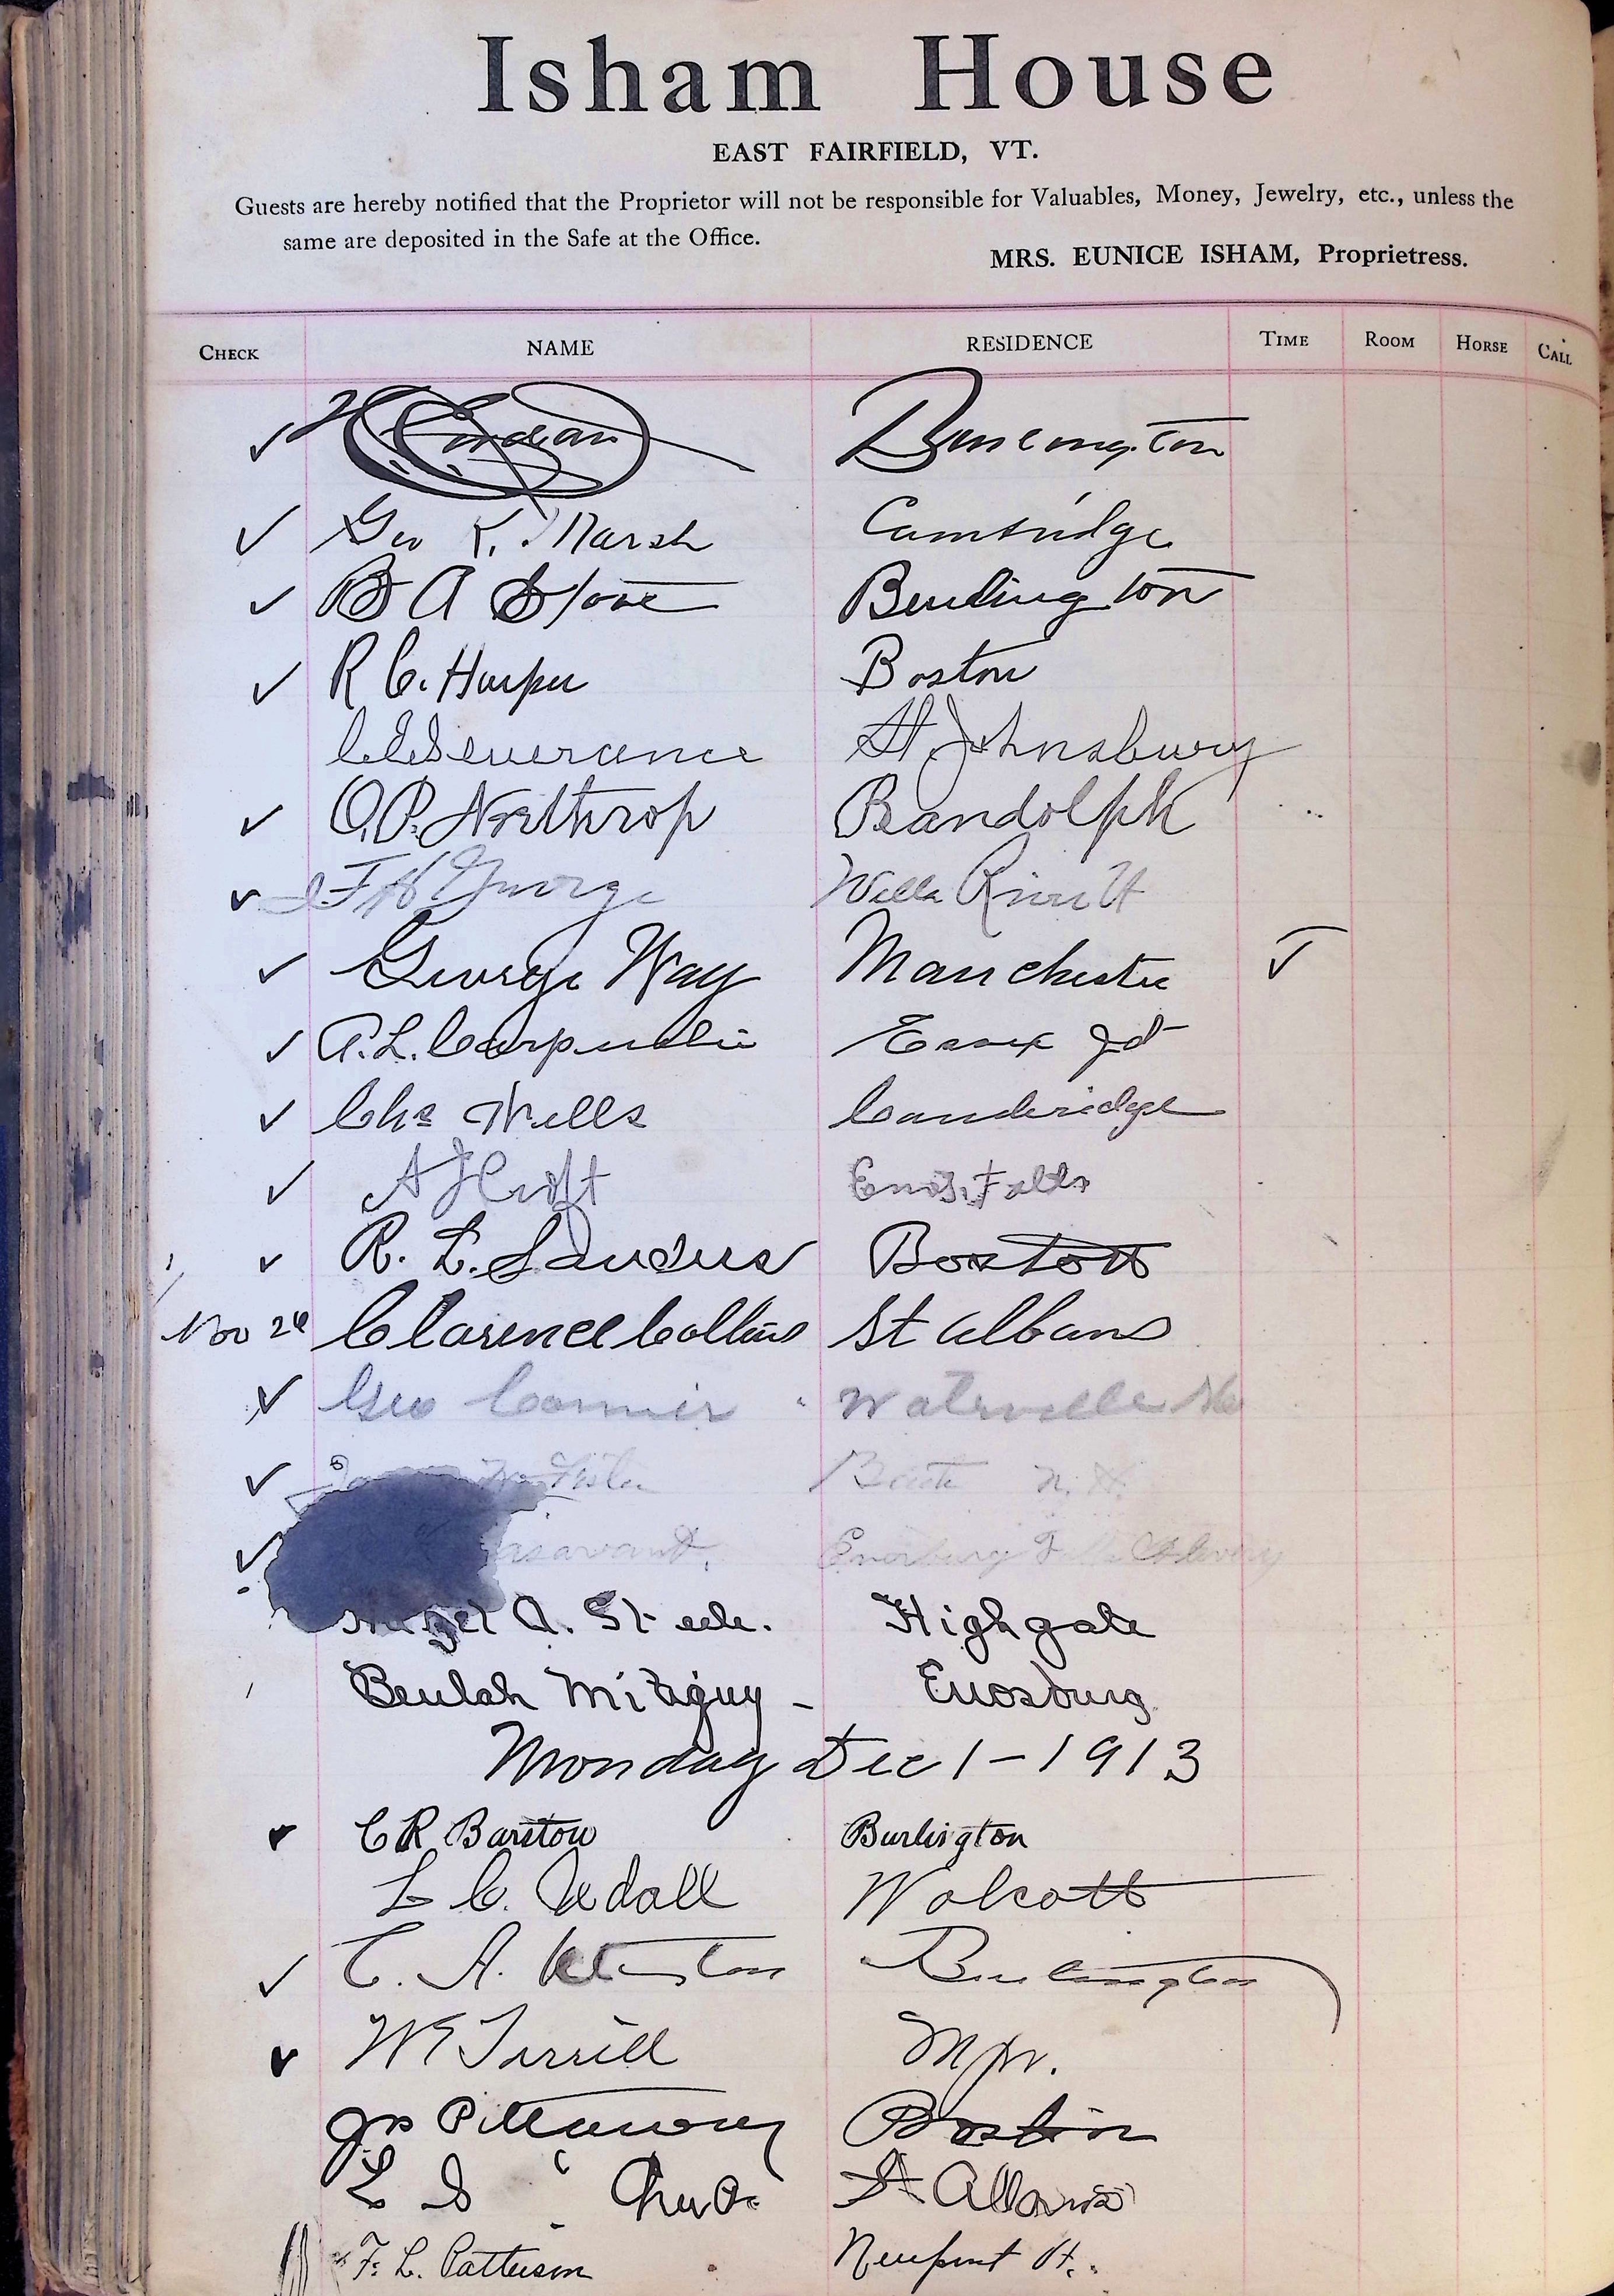 Isham House
EAST FAIRFIELD, VT.
Guests are hereby notified that the Proprietor will not be responsible for Valuables, Money, Jewelry, etc., unless the
same are deposited in the Safe at the Office.
MRS. EUNICE ISHAM, Proprietress.
CHECK NAME RESIDENCE TIME ROOM HORSE CALL
✓ Burlington
✓ Geo K. Marsh Cambridge
✓ B A Stone Burlington
✓ R C. Harper Boston
C E Severance St Johnsbury
✓ O.P. Northrop Randolph
✓ F H George Wells River Vt
✓ George Way Manchester ✓
✓ A. L. Carpenter Essex Jct
✓ Chs Wells Cambridge
✓ A J Croft Enos. Falls
✓ R. L. Sanders Boston
Nov 24 Clarence Collins St Albans
✓ Geo Cormier Waterville Me
✓ N. H.
✓ Enosburg Falls
A. Steele. Highgate
Beulah Mitiguy - Enosburg
Monday Dec 1 - 1913
✓ C R Barstow Burlington
L C. Udall Wolcott
✓ C. A. Burlington
✓ W E Terrill Mpr.
Jno Pittaway Boston
L S St Albans
F. L. Patterson Newport Vt.